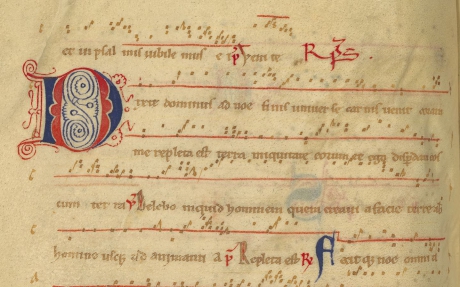 et in psalmis iubile mus e i p Venite R ps
D ixit dominus ad noe finis universe carnis venit coram
me repleta est terra iniquitate eorum et ego disperdam eos
cum terra p Delebo inquid hominem quem creavi a facie terre ab
homine usq; ad animam a p Repleta est R Fecit q; noe omnia